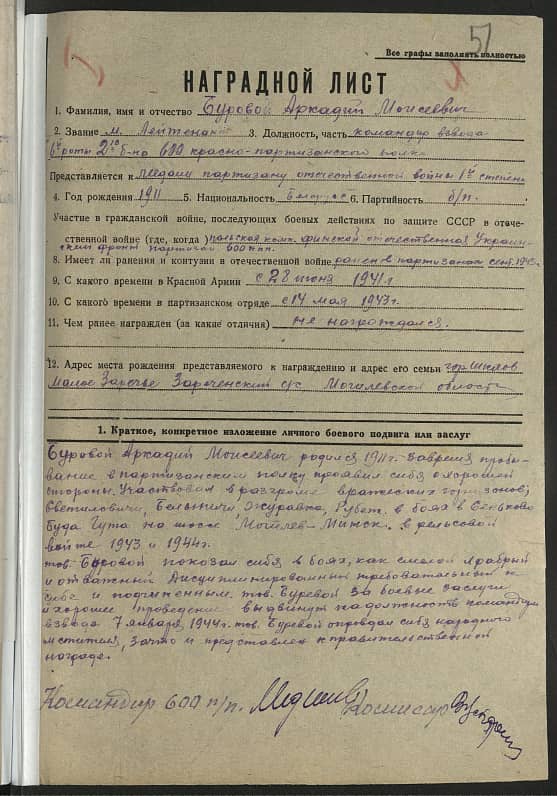 51
Все графы заполнять полностью
НАГРАДНОЙ ЛИСТ
1. Фамилия, имя и отчество Буровой Аркадий Моисеевич
2. Звание м. Лейтенант 3. Должность, часть командир взвода
роты 2го б-на 600 красно-партизанского полка
Представляется к медали партизану отечественной войны 1й степени
4. Год рождения 1911 5. Национальность Белорус 6. Партийность б/п.
Участие в гражданской войне, последующих боевых действиях по защите СССР в отече-
ственной войне (где, когда) польская комп. финской отечественная Украин-
фронт партизан 600 п/п.
8. Имеет ли ранения и контузии в отечественной войне ранен в партизанах сент.
9. С какого времени в Красной Армии с 28 июня 1941 г
10. С какого времени в партизанском отряде с 14 мая 1943 г.
11. Чем ранее награжден (за какие отличия) не награждался.
12. Адрес места рождения представляемого к награждению и адрес его семьи гор Шклов
Малое Заречье Зареченский с/с Могилевской области
1. Краткое, конкретное изложение личного боевого подвига или заслуг
Буровой Аркадий Моисеевич родился 1911 г. За время пребы-
вание в партизанским полку проявил себя с хорошей
стороны. Участвовал в разгроме вражеских гарнизонов;
Светиловичи, Белыничи, Журавка, в боях в
Буда Гута на шосе Могилев-Минск. в рельсовой
войне 1943 и 1944 г.
тов. Буровой показал себя, в боях, как смелой храбрый
и отважный Дисциплинированный требовательный к
себе и подчиненным. тов. Буровой За боевые заслуги
и хорошие проведение выдвинут на должность командира
взвода 7 января 1944 г. тов. Буровой оправдал себя народного
мстителя, за что и представлен к правительственной
награде.
Командир 600 п/п. Комиссар